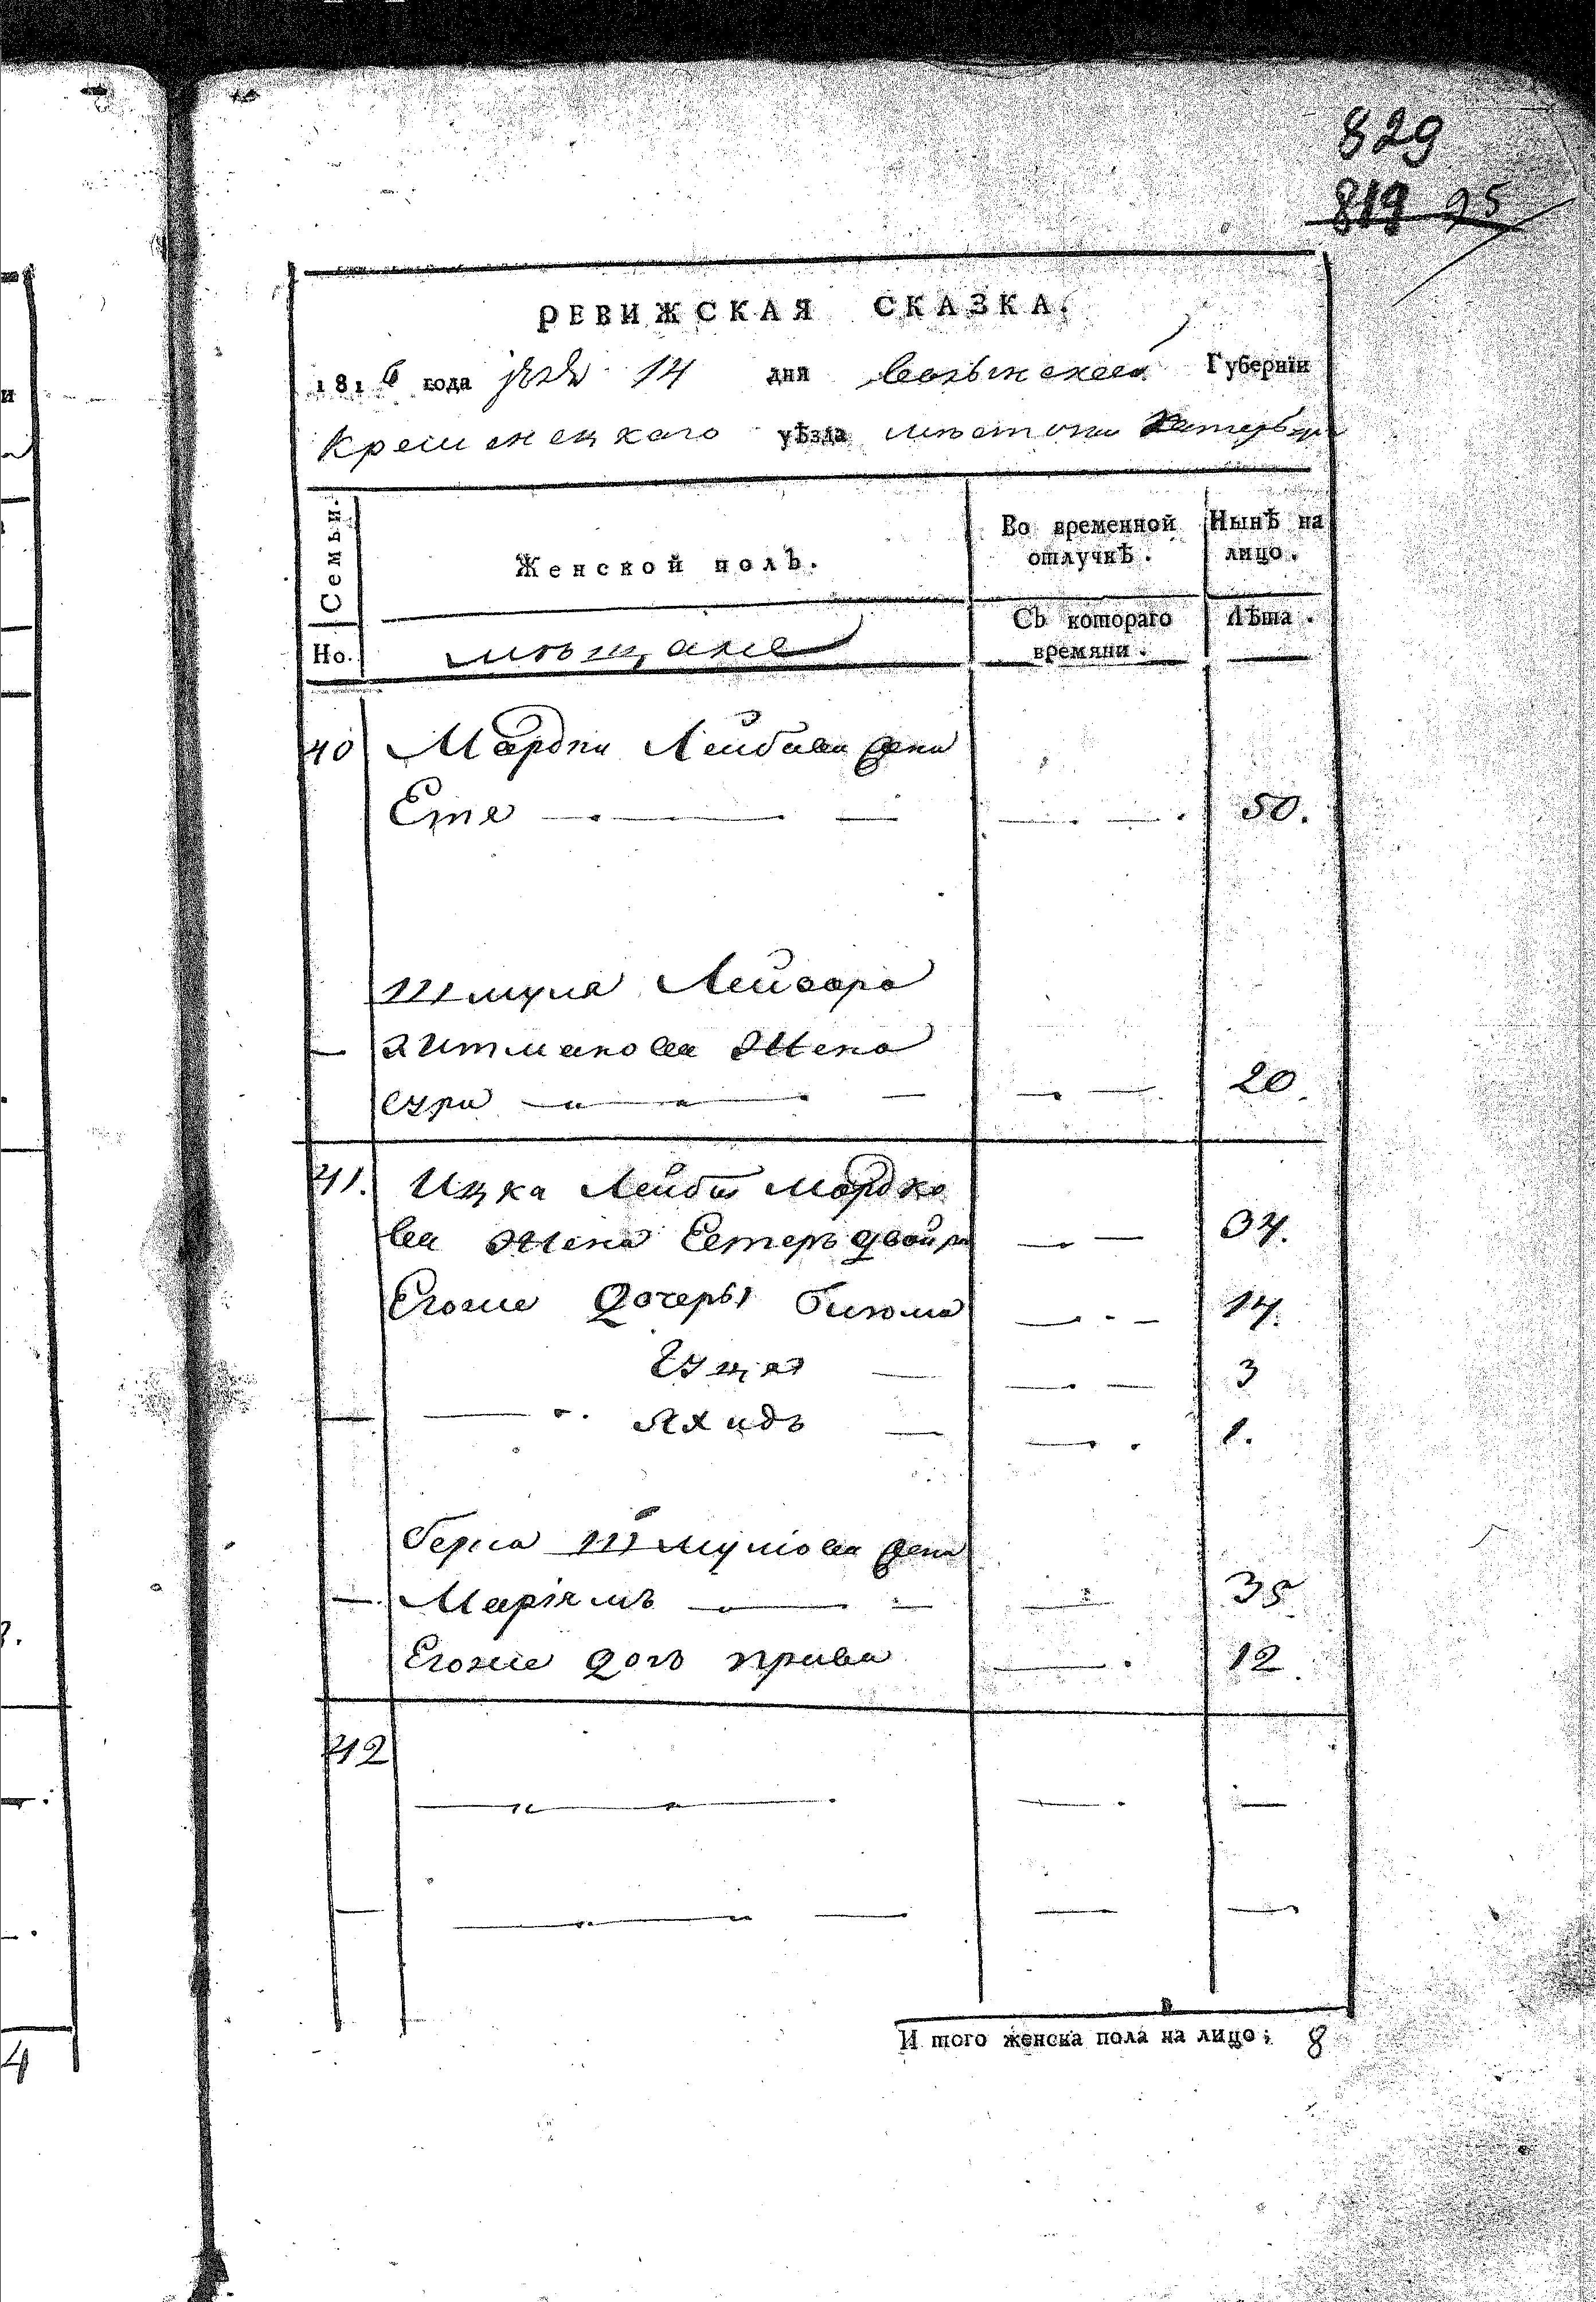 829
819 95
РЕВИЖСКАЯ СКАЗКА.
1816 года 14 дня Волынской Губернїи
Кременецкаго уѣзда местечка Катербурга
Семьи.
Женской полъ.
Во временной отлучкѣ.
Нынѣ на лицо.
Но.
мѣщане
Съ котораго времяни.
Лѣта.
40 Мордки Лейбова жена
Етя 50.
Шмуля Лейзора
жена
сура 20.
41. Ицка Лейбы Мордко
ва жена Естеръ двойра 34.
Егоже дочеры Бизюма 14.
3
Яхидъ 1.
Берка Шмулiова жена
Марiямъ 35
Егоже дочь прива 12.
42
И того женска пола на лицо; 8
4